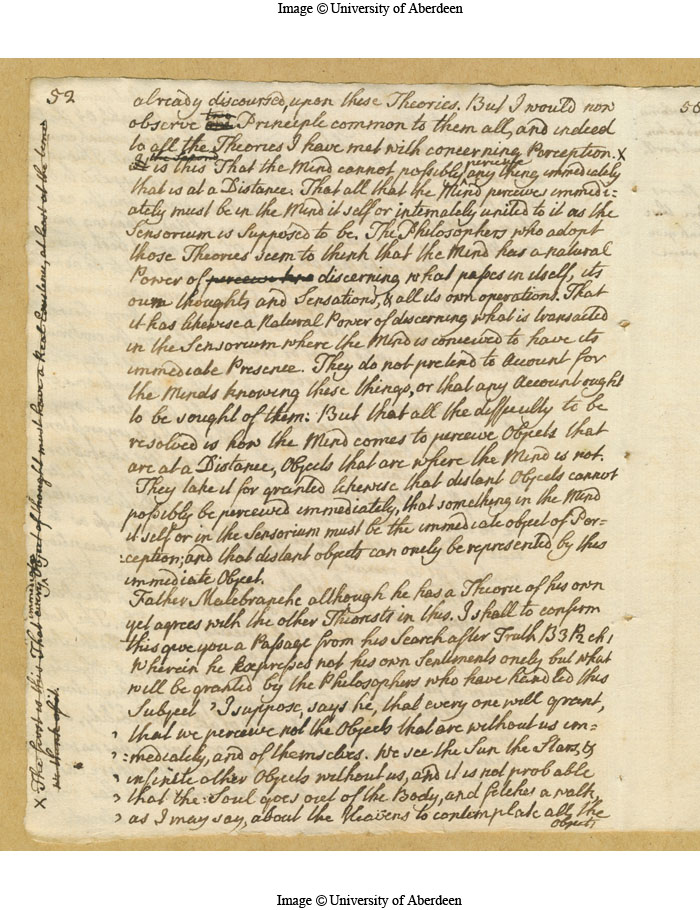 Image © University of Aberdeen
52
already discoursed, upon these Theories. But I would now
observe two Principle common to them all, and indeed
to all the Theories I have met with concerning Perception. X
the Second
is this That the Mind cannot possibly perceive any thing immediately
that is at a Distance. That all that the Mind perceives immedi=
ately must be in the Mind it self or intimately united to it as the
Sensorium is supposed to be. The Philosophers who adopt
those Theories seem to think that the Mind has a natural
Power of discerning what passes in itself, its
own thoughts and Sensations, & all its own operations. That
it has likewise a Natural Power of discerning what is transacted
in the Sensorium where the Mind is conceived to have its
immediate Presence. They do not pretend to Account for
the Minds knowing these things, or that any Account ought
to be sought of them: But that all the difficulty to be
resolved is how the Mind comes to perceive Objects that
are at a Distance, Objects that are where the Mind is not.
They take it for granted likewise that distant Objects cannot
possibly be perceived immediately, that something in the Mind
it self or in the Sensorium must be the immediate object of Per=
:ception; and that distant objects can onely be represented by this
immediate Object.
Father Malebranche although he has a Theorie of his own
yet agrees with the other Theorists in this. I shall to confirm
this give you a Passage from his Search after Truth B3 P2 ch1
Wherein he expresses not his own Sentiments onely but what
will be granted by the Philosophers who have handled this
Subject ' I suppose, says he, that every one will grant,
' that we perceive not the Objects that are without us im=
' :mediately, and of themselves. We see the Sun the Stars, &
' infinite other Objects without us, and it is not probable
' that the Soul goes out of the Body, and fetches a walk,
' as I may say, about the Heavens to contemplate all the
objects
X The first is this That every immediate Object of thought must have a Real Existence, at least at the time
we think of it.
Image © University of Aberdeen